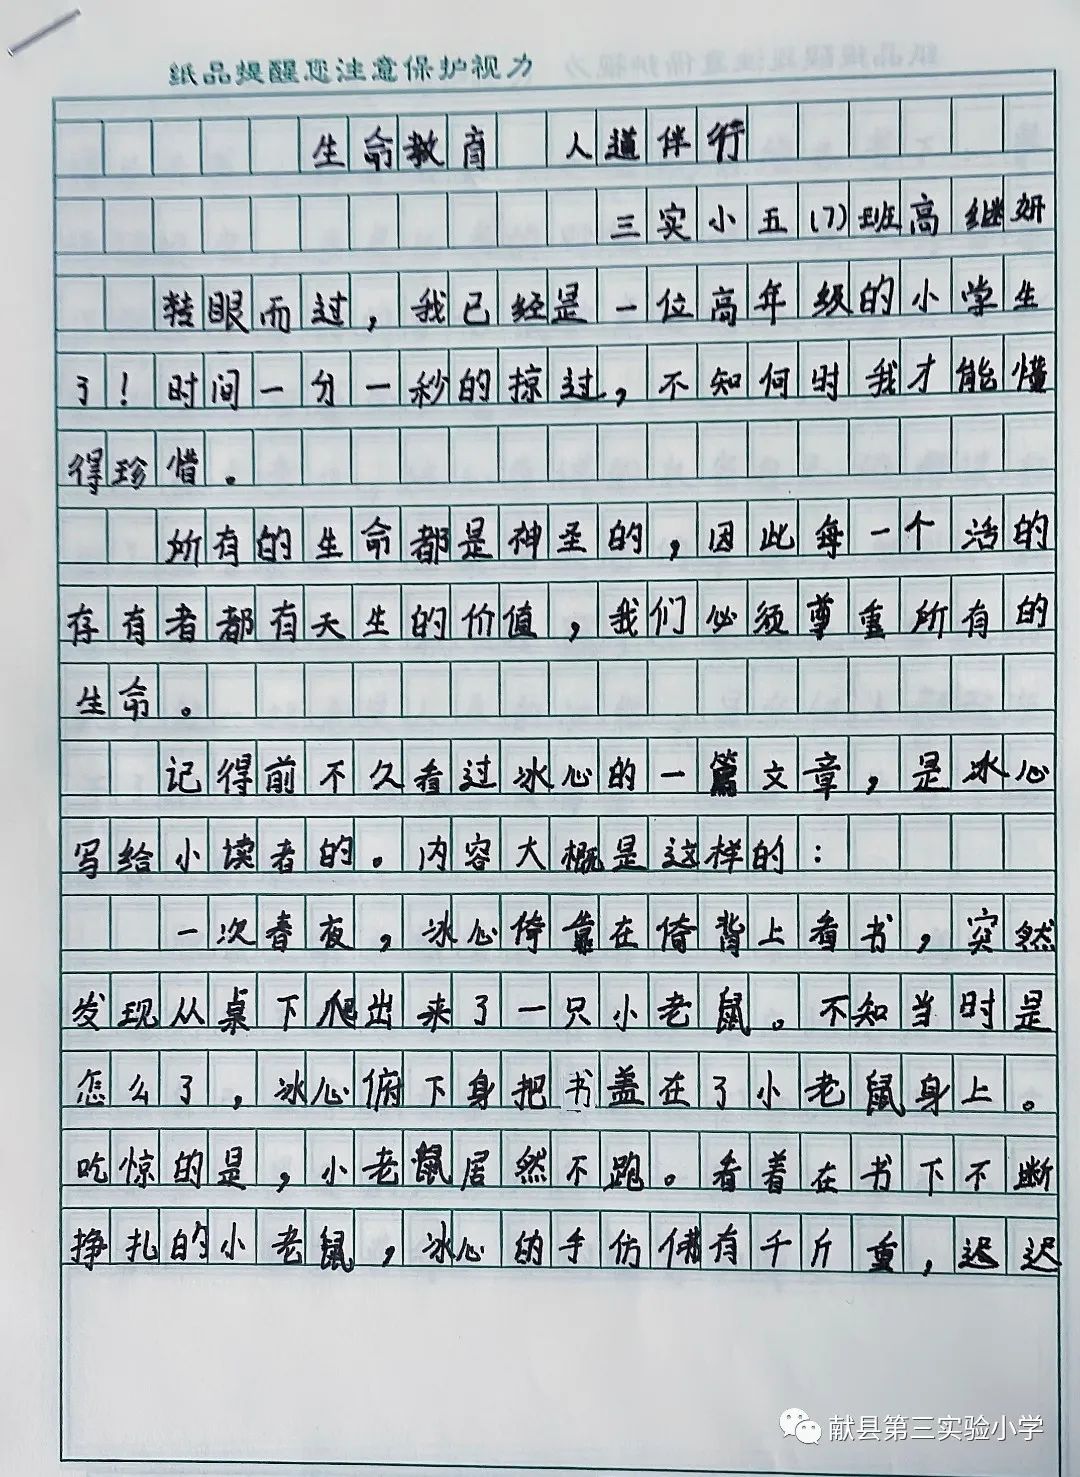 纸品提醒您注意保护视力
生命教育 人道伴行
三实小五(7)班高继妍
转眼而过，我已经是一位高年级的小学生
了！时间一分一秒的掠过，不知何时我才能懂
得珍惜。
所有的生命都是神圣的，因此每一个活的
存有者都有天生的价值，我们必须尊重所有的
生命。
记得前不久看过冰心的一篇文章，是冰心
写给小读者的。内容大概是这样的：
一次春夜，冰心倚靠在倚背上看书，突然
发现从桌下爬出来了一只小老鼠。不知当时是
怎么了，冰心俯下身把书盖在了小老鼠身上。
吃惊的是，小老鼠居然不跑。看着在书下不断
挣扎的小老鼠，冰心的手仿佛有千斤重，迟迟
献县第三实验小学